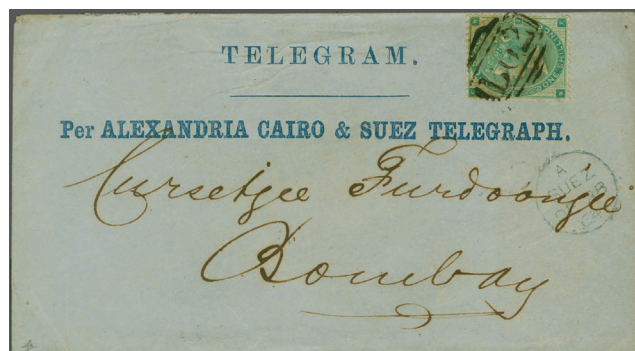 TELEGRAM.
Per ALEXANDRIA CAIRO & SUEZ TELEGRAPH.
Cursetjee Furdoonjee
Bombay
A
SUEZ
ONE